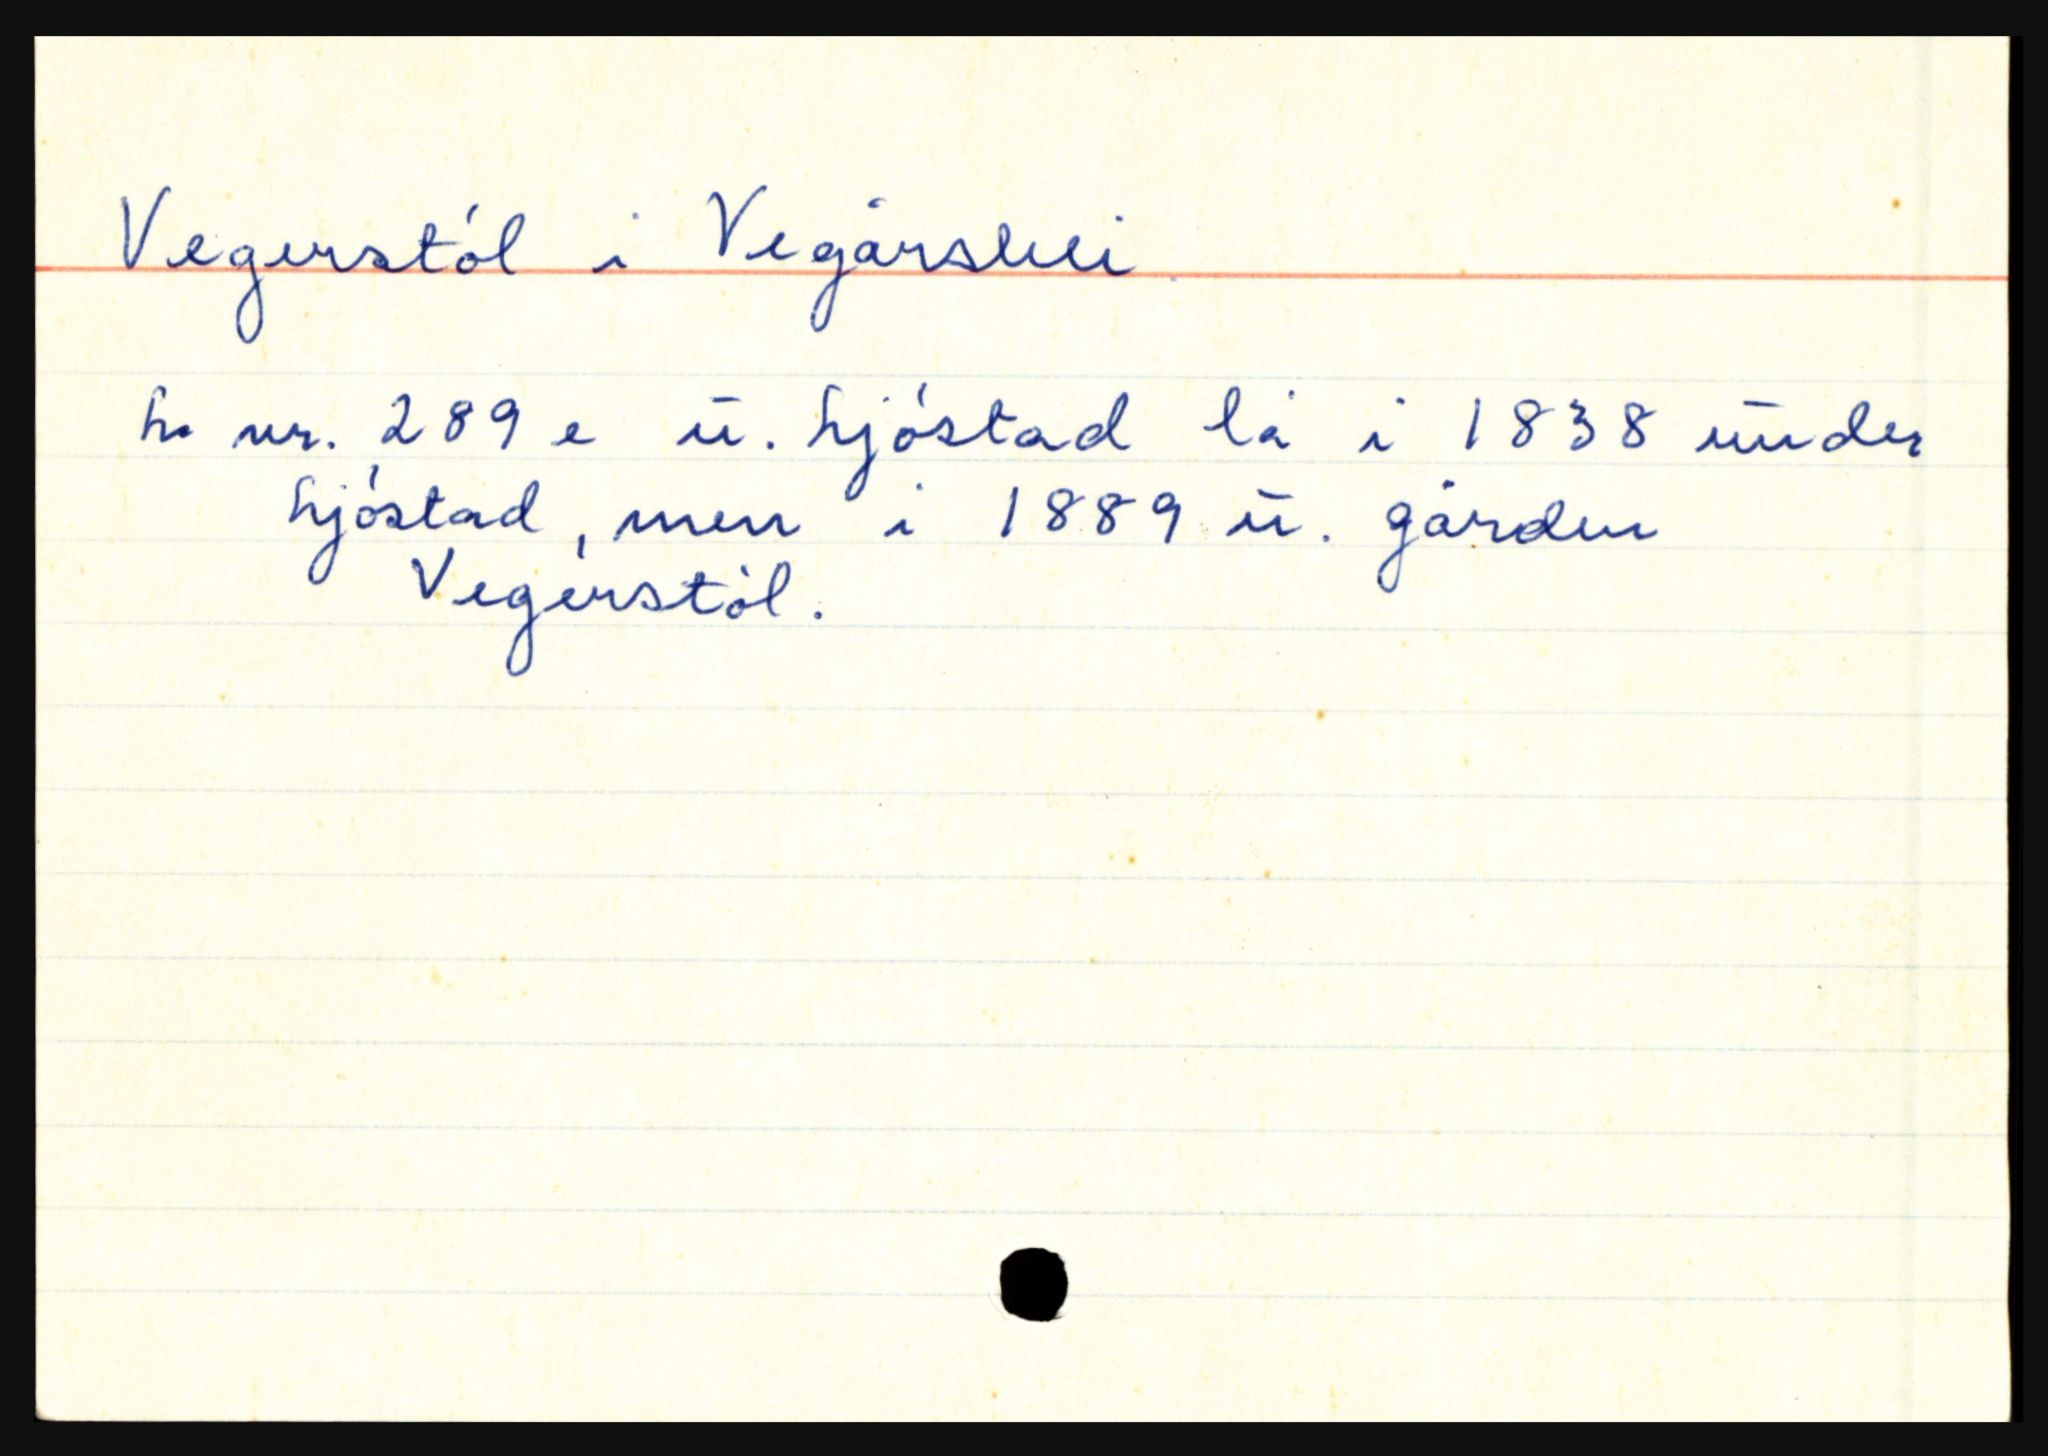 Vegerstøl i Vegårshei
L. nr. 289 e u. Ljøstad lå i 1838 under
Ljøstad, men i 1889 u. gården
Vegerstøl.